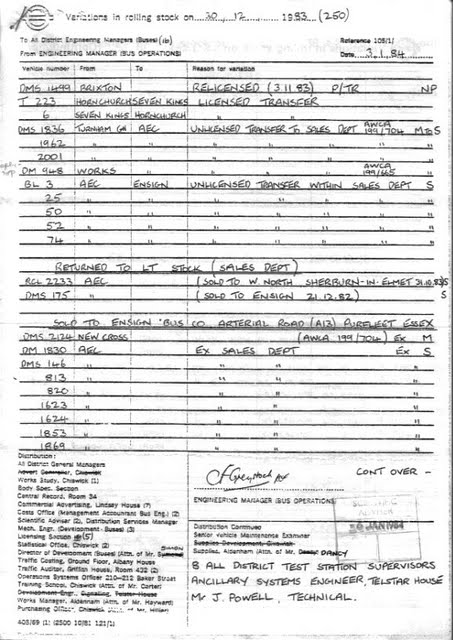 Variations in rolling stock on 30. 12. 1983 (250)
To All District Engineering Managers (Buses) (16) Reference 105/1)
From ENGINEERING MANAGER (BUS OPERATIONS) Date 3.1.84
Vehicle number From To Reason for variation
DMS 1499 BRIXTON RELICENSED (3.11.83) P/TR NP
T 223 HORNCHURCH SEVEN KINGS LICENSED TRANSFER
6 SEVEN KINGS HORNCHURCH " "
DMS 1836 TURNHAM GN AEC UNLICENSED TRANSFER TO SALES DEPT AWCA 199/704 M to S
1962 " " " " "
2001 " " " " "
DM 948 WORKS " " AWCA 199/665 "
BL 3 AEC ENSIGN UNLICENSED TRANSFER WITHIN SALES DEPT S
25 " " " "
50 " " " "
52 " " " "
74 " " " "
RETURNED TO LT STOCK (SALES DEPT)
RCL 2233 AEC (SOLD TO W. NORTH SHERBURN-IN-ELMET 21.10.83) S
DMS 175 " (SOLD TO ENSIGN 21.12.82) S
SOLD TO ENSIGN BUS CO. ARTERIAL ROAD (A13) PURFLEET ESSEX
DMS 2124 NEW CROSS (AWCA 199/704) EX M
DM 1830 AEC EX SALES DEPT EX S
DMS 146 " " "
813 " " "
820 " " "
1623 " " "
1624 " " "
1853 " " "
1869 " " "
Distribution:
All District General Managers
Works Study, Chiswick (1)
Body Spec. Section
Central Record, Room 34
Commercial Advertising, Lindsey House (7)
Costs Office (Management Accountant Bus Eng.) (2)
Scientific Adviser (2), Distribution Services Manager
Mech. Engr. (Development - Buses) (3)
Licensing Section (5)
Statistical Office, Chiswick (2)
Director of Development (Buses) (Attn. of Mr.
Traffic Costing, Ground Floor, Albany House
Traffic Auditor, Griffith House, Room 432 (2)
Operations Systems Officer 210-212 Baker Street
Training School, Chiswick (Attn. of Mr. Carter)
Works Manager, Aldenham (Attn. of Mr. Hayward)
Purchasing Officer, Chiswick
A05/69 (1) (2500 10/81 121/1)
CONT OVER -
ENGINEERING MANAGER (BUS OPERATIONS)
6 JAN 1984
Distribution Continued
Senior Vehicle Maintenance Examiner
Supplies, Aldenham (Attn. of Mr. DANCY)
8 ALL DISTRICT TEST STATION SUPERVISORS
ANCILLARY SYSTEMS ENGINEER, TELSTAR HOUSE
Mr J. POWELL, TECHNICAL.